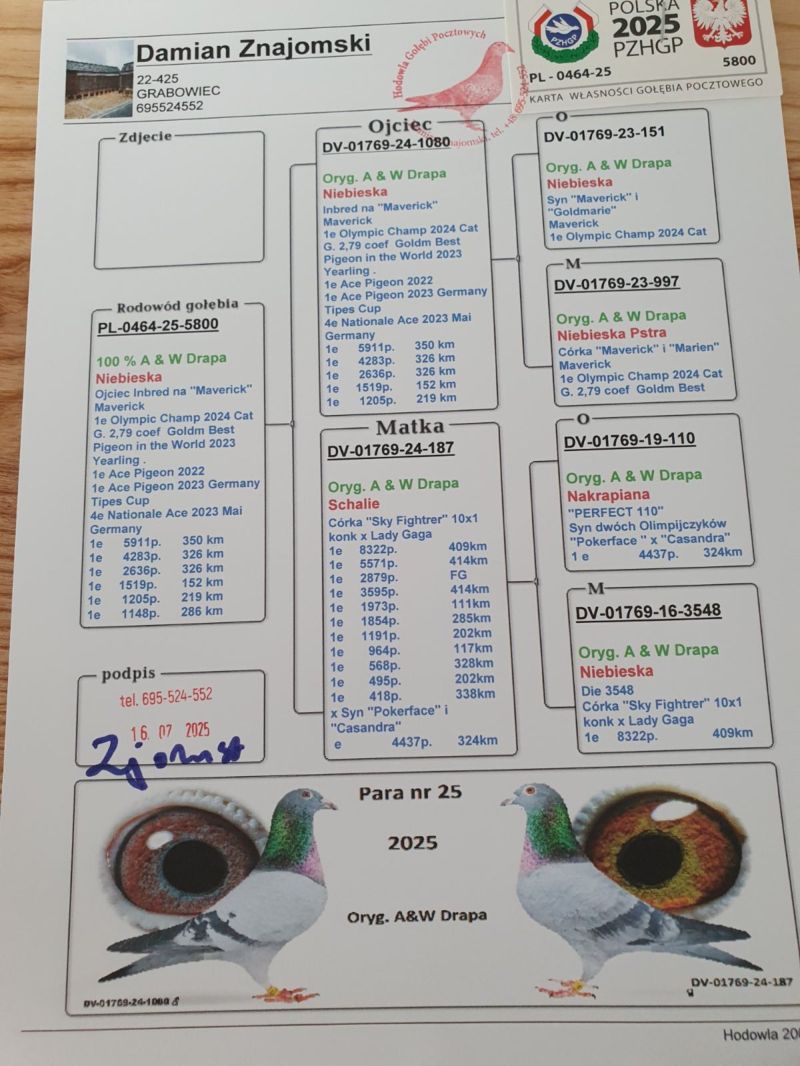 Damian Znajomski
22-425
GRABOWIEC
695524552
Hodowla Gołębi Pocztowych
Damian Znajomski, tel. +48 695-524-552
POLSKA
2025
PZHGP
PZHGP
PL - 0464-25
5800
KARTA WŁASNOŚCI GOŁĘBIA POCZTOWEGO
Zdjecie
Rodowód gołębia
PL-0464-25-5800
100 % A & W Drapa
Niebieska
Ojciec Inbred na "Maverick"
Maverick
1e Olympic Champ 2024 Cat
G. 2,79 coef Goldm Best
Pigeon in the World 2023
Yearling .
1e Ace Pigeon 2022
1e Ace Pigeon 2023 Germany
Tipes Cup
4e Nationale Ace 2023 Mai
Germany
1e 5911p. 350 km
1e 4283p. 326 km
1e 2636p. 326 km
1e 1519p. 152 km
1e 1205p. 219 km
1e 1148p. 286 km
podpis
tel. 695-524-552
16. 07 2025
Ojciec
DV-01769-24-1080
Oryg. A & W Drapa
Niebieska
Inbred na "Maverick"
Maverick
1e Olympic Champ 2024 Cat
G. 2,79 coef Goldm Best
Pigeon in the World 2023
Yearling .
1e Ace Pigeon 2022
1e Ace Pigeon 2023 Germany
Tipes Cup
4e Nationale Ace 2023 Mai
Germany
1e 5911p. 350 km
1e 4283p. 326 km
1e 2636p. 326 km
1e 1519p. 152 km
1e 1205p. 219 km
Matka
DV-01769-24-187
Oryg. A & W Drapa
Schalie
Córka "Sky Fightrer" 10x1
konk x Lady Gaga
1e 8322p. 409km
1e 5571p. 414km
1e 2879p. FG
1e 3595p. 414km
1e 1973p. 111km
1e 1854p. 285km
1e 1191p. 202km
1e 964p. 117km
1e 568p. 328km
1e 495p. 202km
1e 418p. 338km
x Syn "Pokerface" i
"Casandra"
e 4437p. 324km
O
DV-01769-23-151
Oryg. A & W Drapa
Niebieska
Syn "Maverick" i
"Goldmarie"
Maverick
1e Olympic Champ 2024 Cat
M
DV-01769-23-997
Oryg. A & W Drapa
Niebieska Pstra
Córka "Maverick" i "Marien"
Maverick
1e Olympic Champ 2024 Cat
G. 2,79 coef Goldm Best
O
DV-01769-19-110
Oryg. A & W Drapa
Nakrapiana
"PERFECT 110"
Syn dwóch Olimpijczyków
"Pokerface " x "Casandra"
1 e 4437p. 324km
M
DV-01769-16-3548
Oryg. A & W Drapa
Niebieska
Die 3548
Córka "Sky Fightrer" 10x1
konk x Lady Gaga
1e 8322p. 409km
Para nr 25
2025
Oryg. A&W Drapa
DV-01769-24-1080
DV-01769-24-187